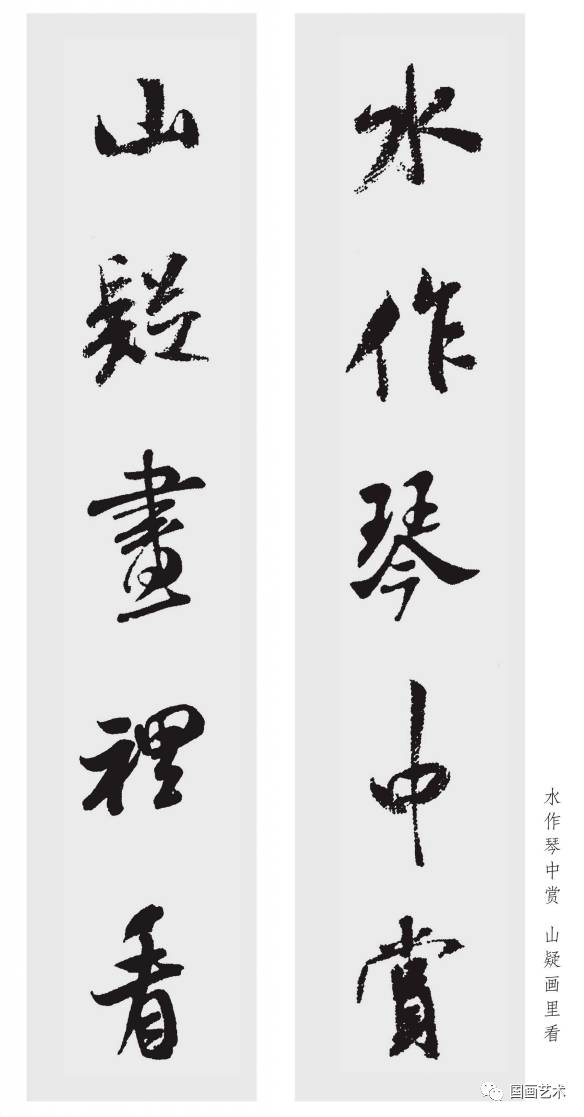 水作琴中賞
山疑畫裡看
水作琴中赏 山疑画里看
国画艺术